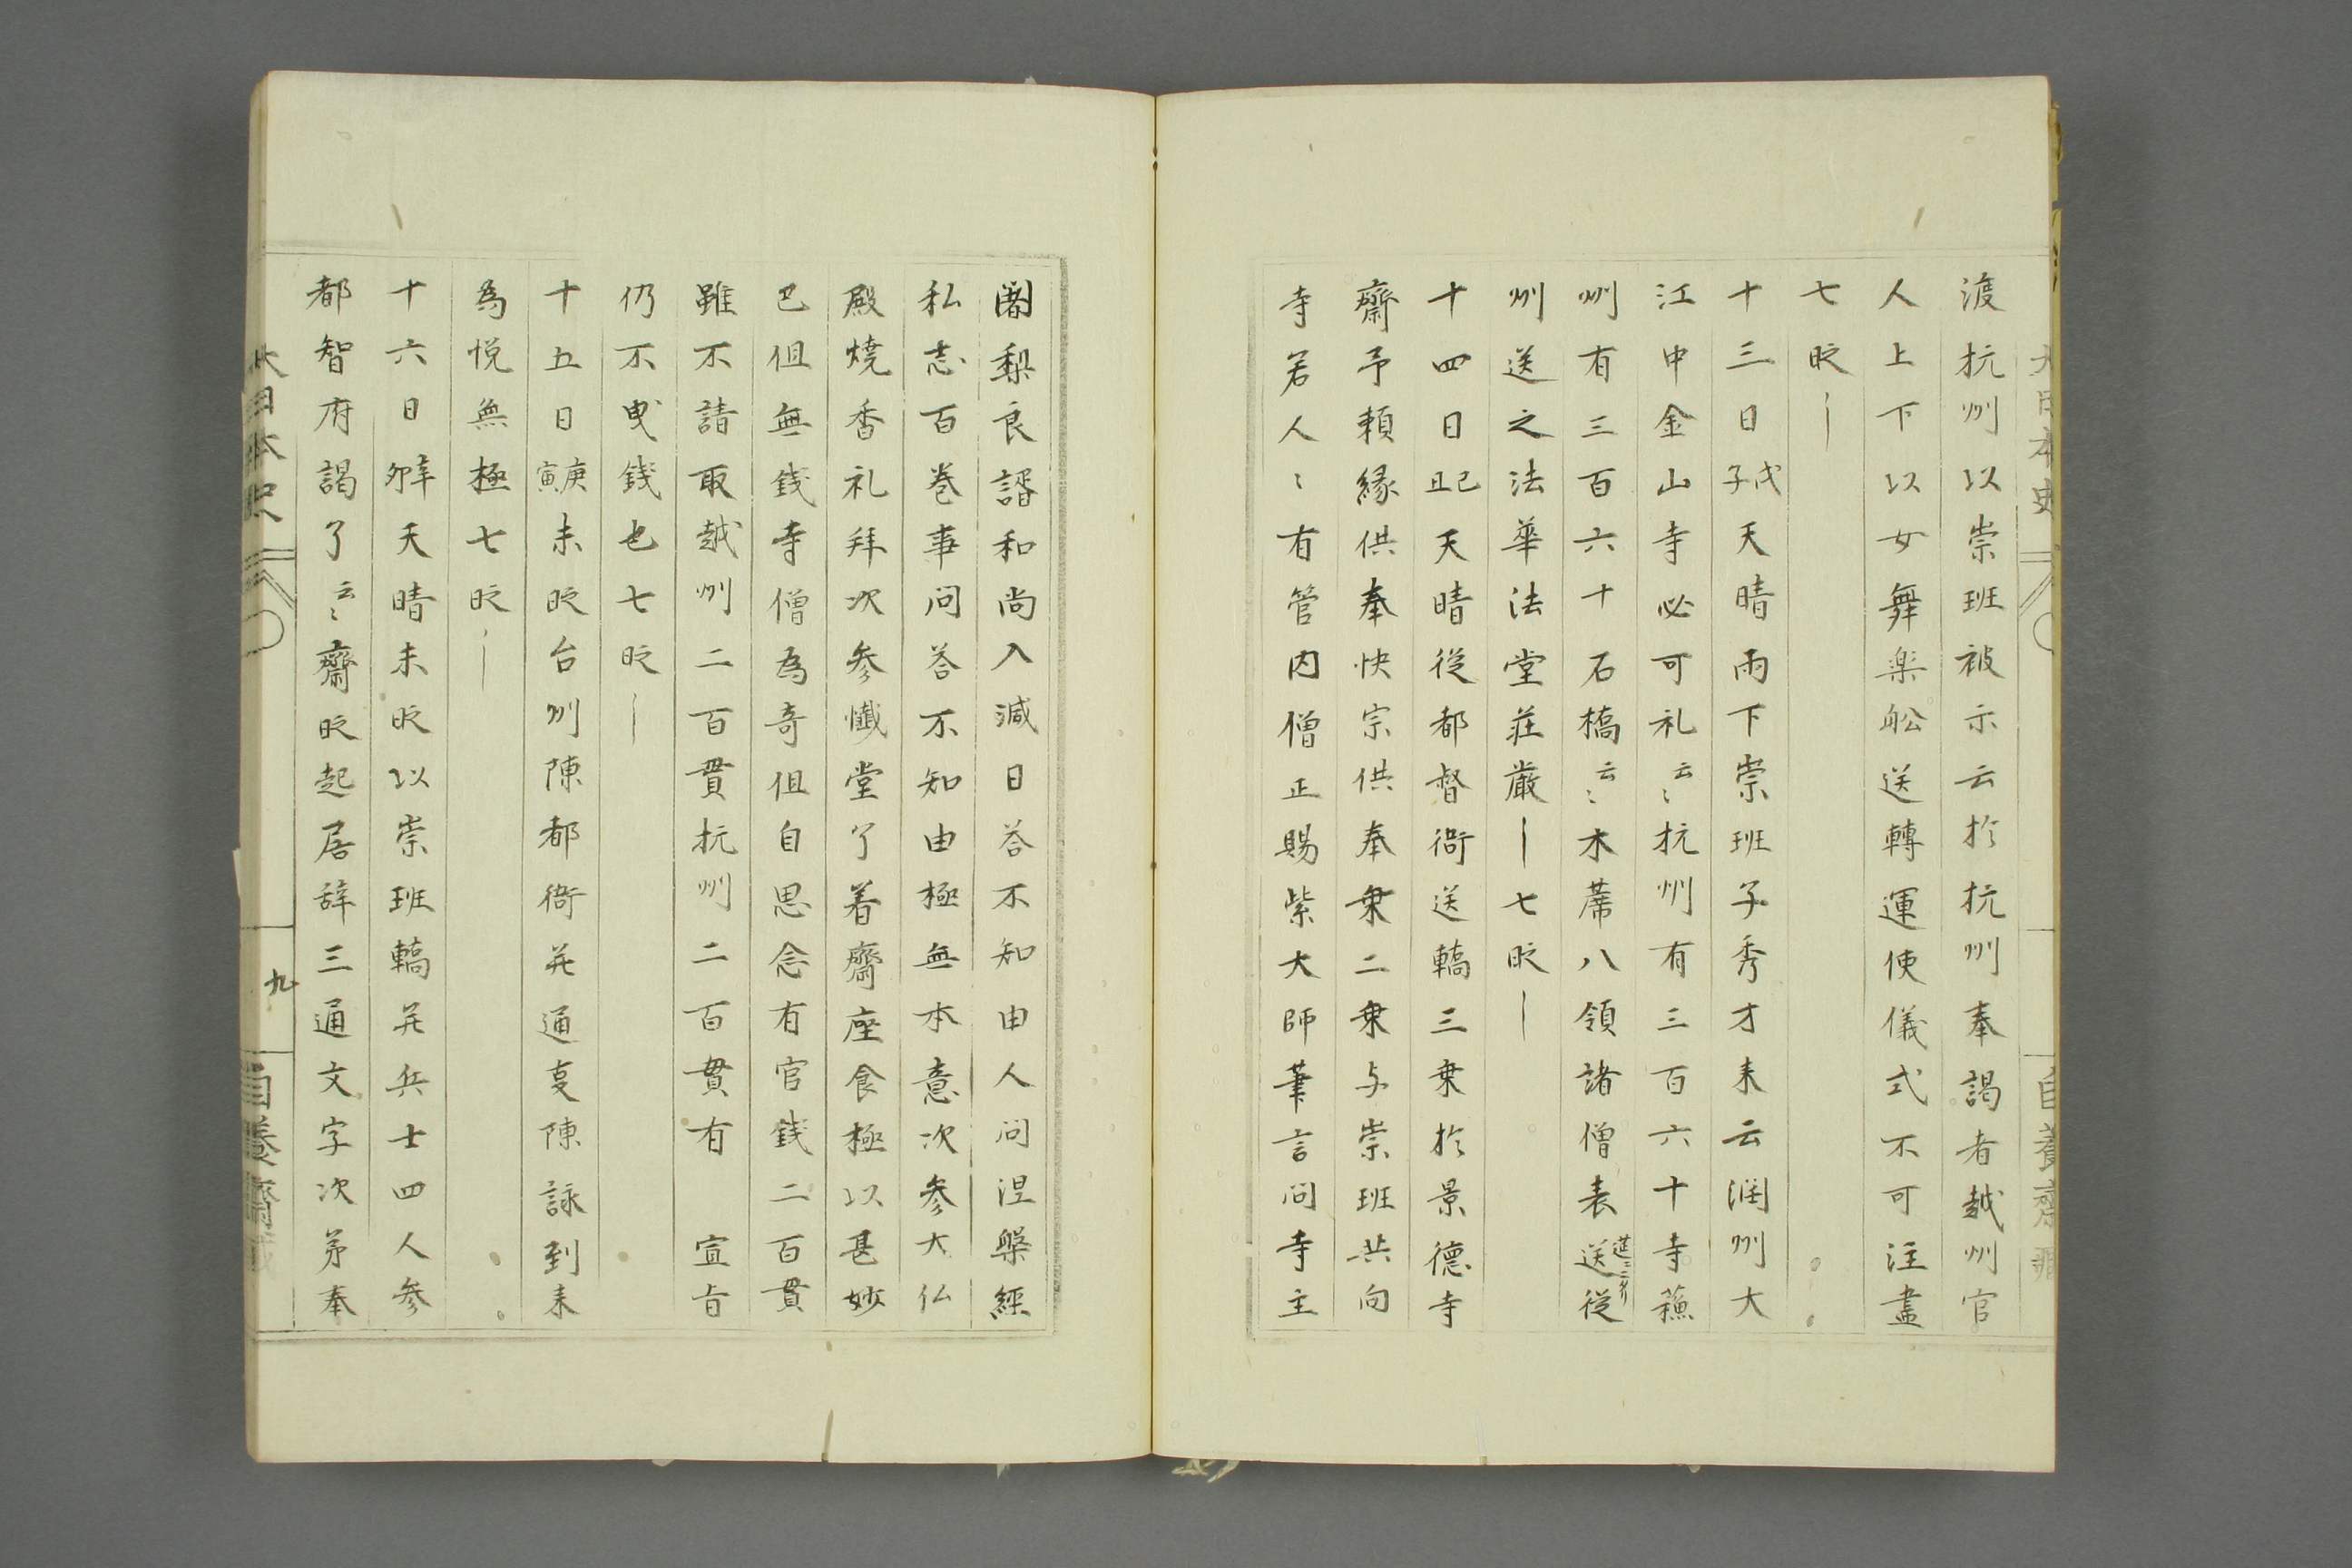 渡杭州以崇班被示云於杭州奉謁者越州官
人上下以女舞楽舩送轉運使儀式不可注盡
七時｜
十三日戊子天晴雨下崇班子秀才来云潤州大
江中金山寺必可礼云〻杭州有三百六十寺蘓
州有三百六十石橋云〻木蓆八領諸僧表送従
州送之法華法堂荘厳｜七時｜
十四日己丑天晴従都督衙送轎三乗於景德寺
齋予頼縁供奉快宗供奉乗二乗与崇班共向
寺若人〻有管内僧正賜紫大師筆言問寺主
闍梨良諝和尚入滅日荅不知由人問涅槃經
私志百巻事問荅不知由極無本意次参大仏
殿燒香礼拜次参懺堂了着齋座食極以甚妙
巴但無錢寺僧為奇但自思念有官錢二百貫
雖不請取越州二百貫杭州二百貫有 宣旨
仍不曳錢也七時｜
十五日庚寅未時台州陳都衙并通事陳詠到来
為悦無極七時｜
十六日辛卯天晴未時以崇班轎并兵士四人参
都智府謁了云〻齋時起居辞三通文字次第奉
大日本史
九
自養齋